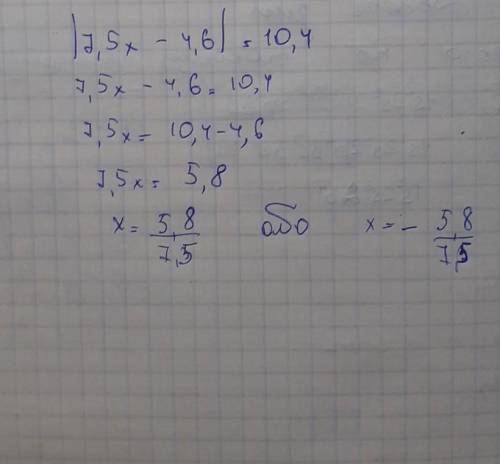 |7,5x - 4,6| = 10,4
7,5x - 4,6 = 10,4
7,5x = 10,4 - 4,6
7,5x = 5,8
x = 5,8/7,5 або x = - 5,8/7,5